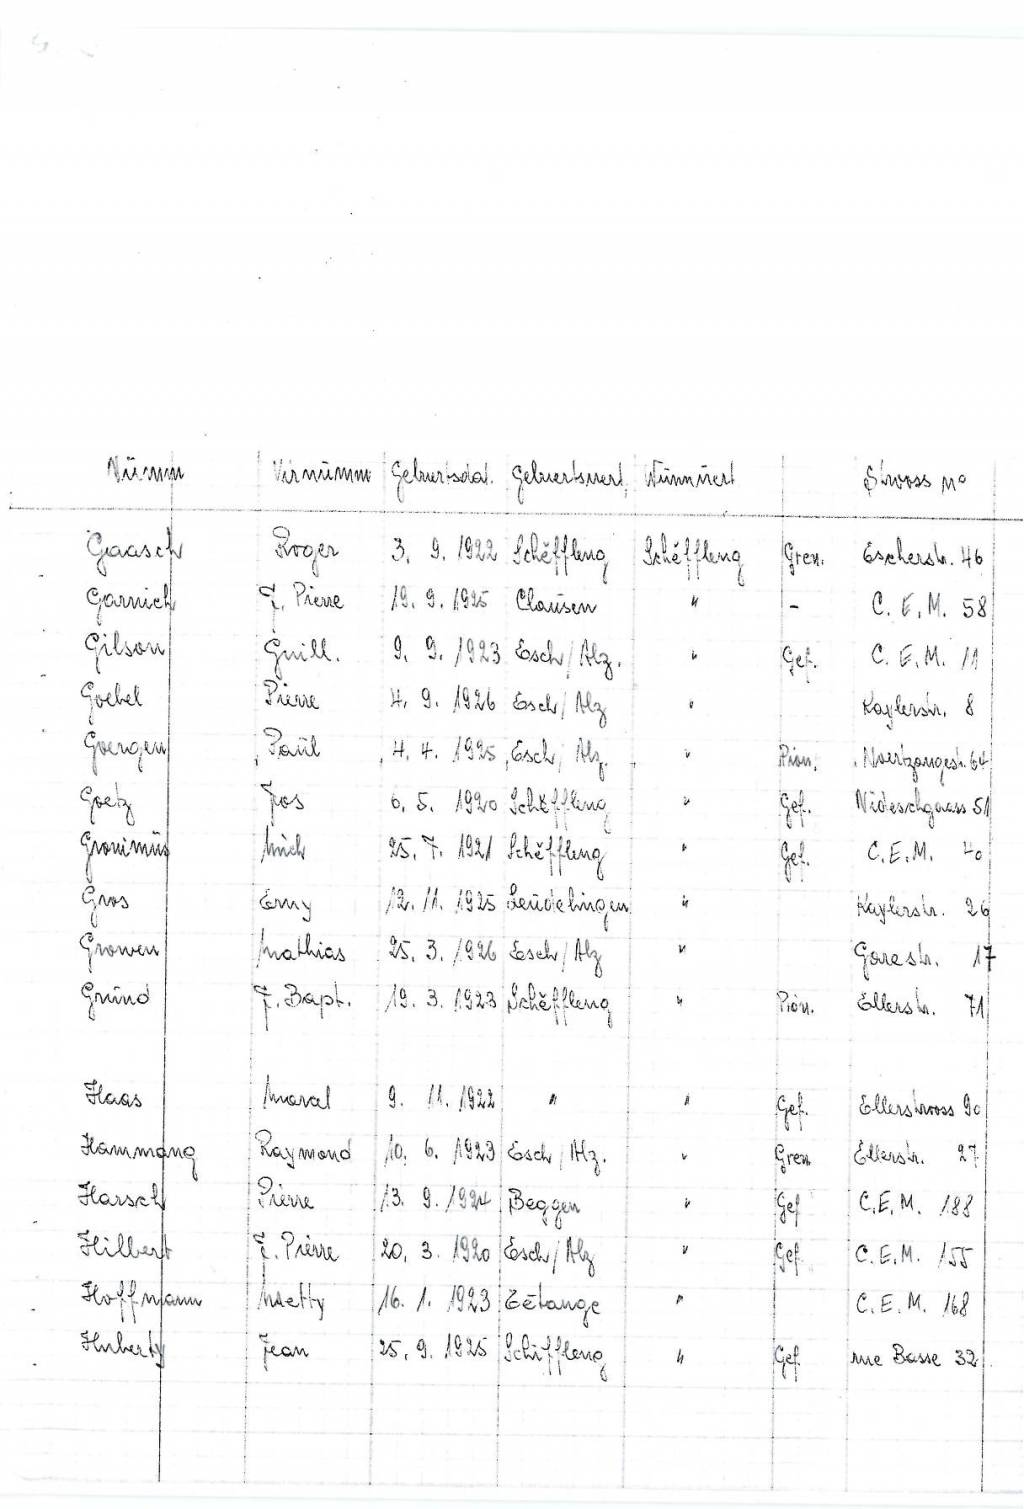 Nümm Virnumm Geburtsdat. Gebuertsuert Wunnuert Strooss No
Gaasch Roger 3. 9. 1922 Schëffleng Schëffleng Gren. Escherstr. 46
Garnich J. Pierre 19. 9. 1925 Clausen " - C. E. M. 58
Gilson Guill. 9. 9. 1923 Esch/Alz. " Gef. C. E. M. 11
Goebel Pierre 4. 9. 1926 Esch/Alz " Kaylerstr. 8
Goergen Paul 4. 4. 1925 Esch/Alz. " Pion. Noertzangestr. 64
Goetz Jos 6. 5. 1920 Schëffleng " Gef. Nideschgaass 51
Gronimus Mich 25. 7. 1921 Schëffleng " Gef. C. E. M. 40
Gros Erny 12. 11. 1925 Leudelingen " Kaylerstr. 26
Growen Mathias 25. 3. 1926 Esch/Alz " Garestr. 17
Grund J. Bapt. 19. 3. 1923 Schëffleng " Pion. Ellerstr. 71
Haas Marcel 9. 11. 1922 " " Gef. Ellerstrooss 90
Hammang Raymond 10. 6. 1923 Esch/Alz. " Gren Ellerstr. 27
Harsch Pierre 13. 9. 1924 Beggen " Gef C. E. M. 188
Hilbert J. Pierre 20. 3. 1920 Esch/Alz " Gef. C. E. M. 155
Hoffmann Metty 16. 1. 1923 Tétange " C. E. M. 168
Huberty Jean 25. 9. 1925 Schiffleng " Gef. rue Basse 32